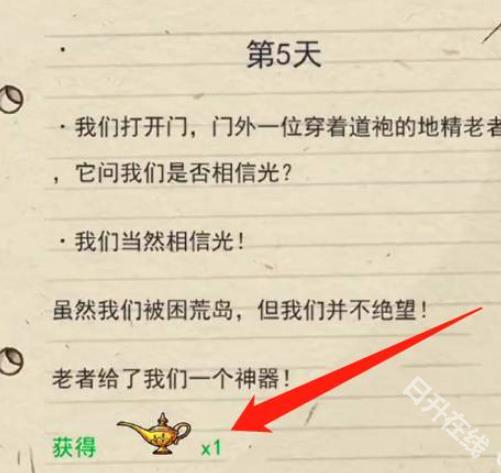 第5天
·我们打开门，门外一位穿着道袍的地精老者
，它问我们是否相信光？
·我们当然相信光！
虽然我们被困荒岛，但我们并不绝望！
老者给了我们一个神器！
获得 x1
日升在线